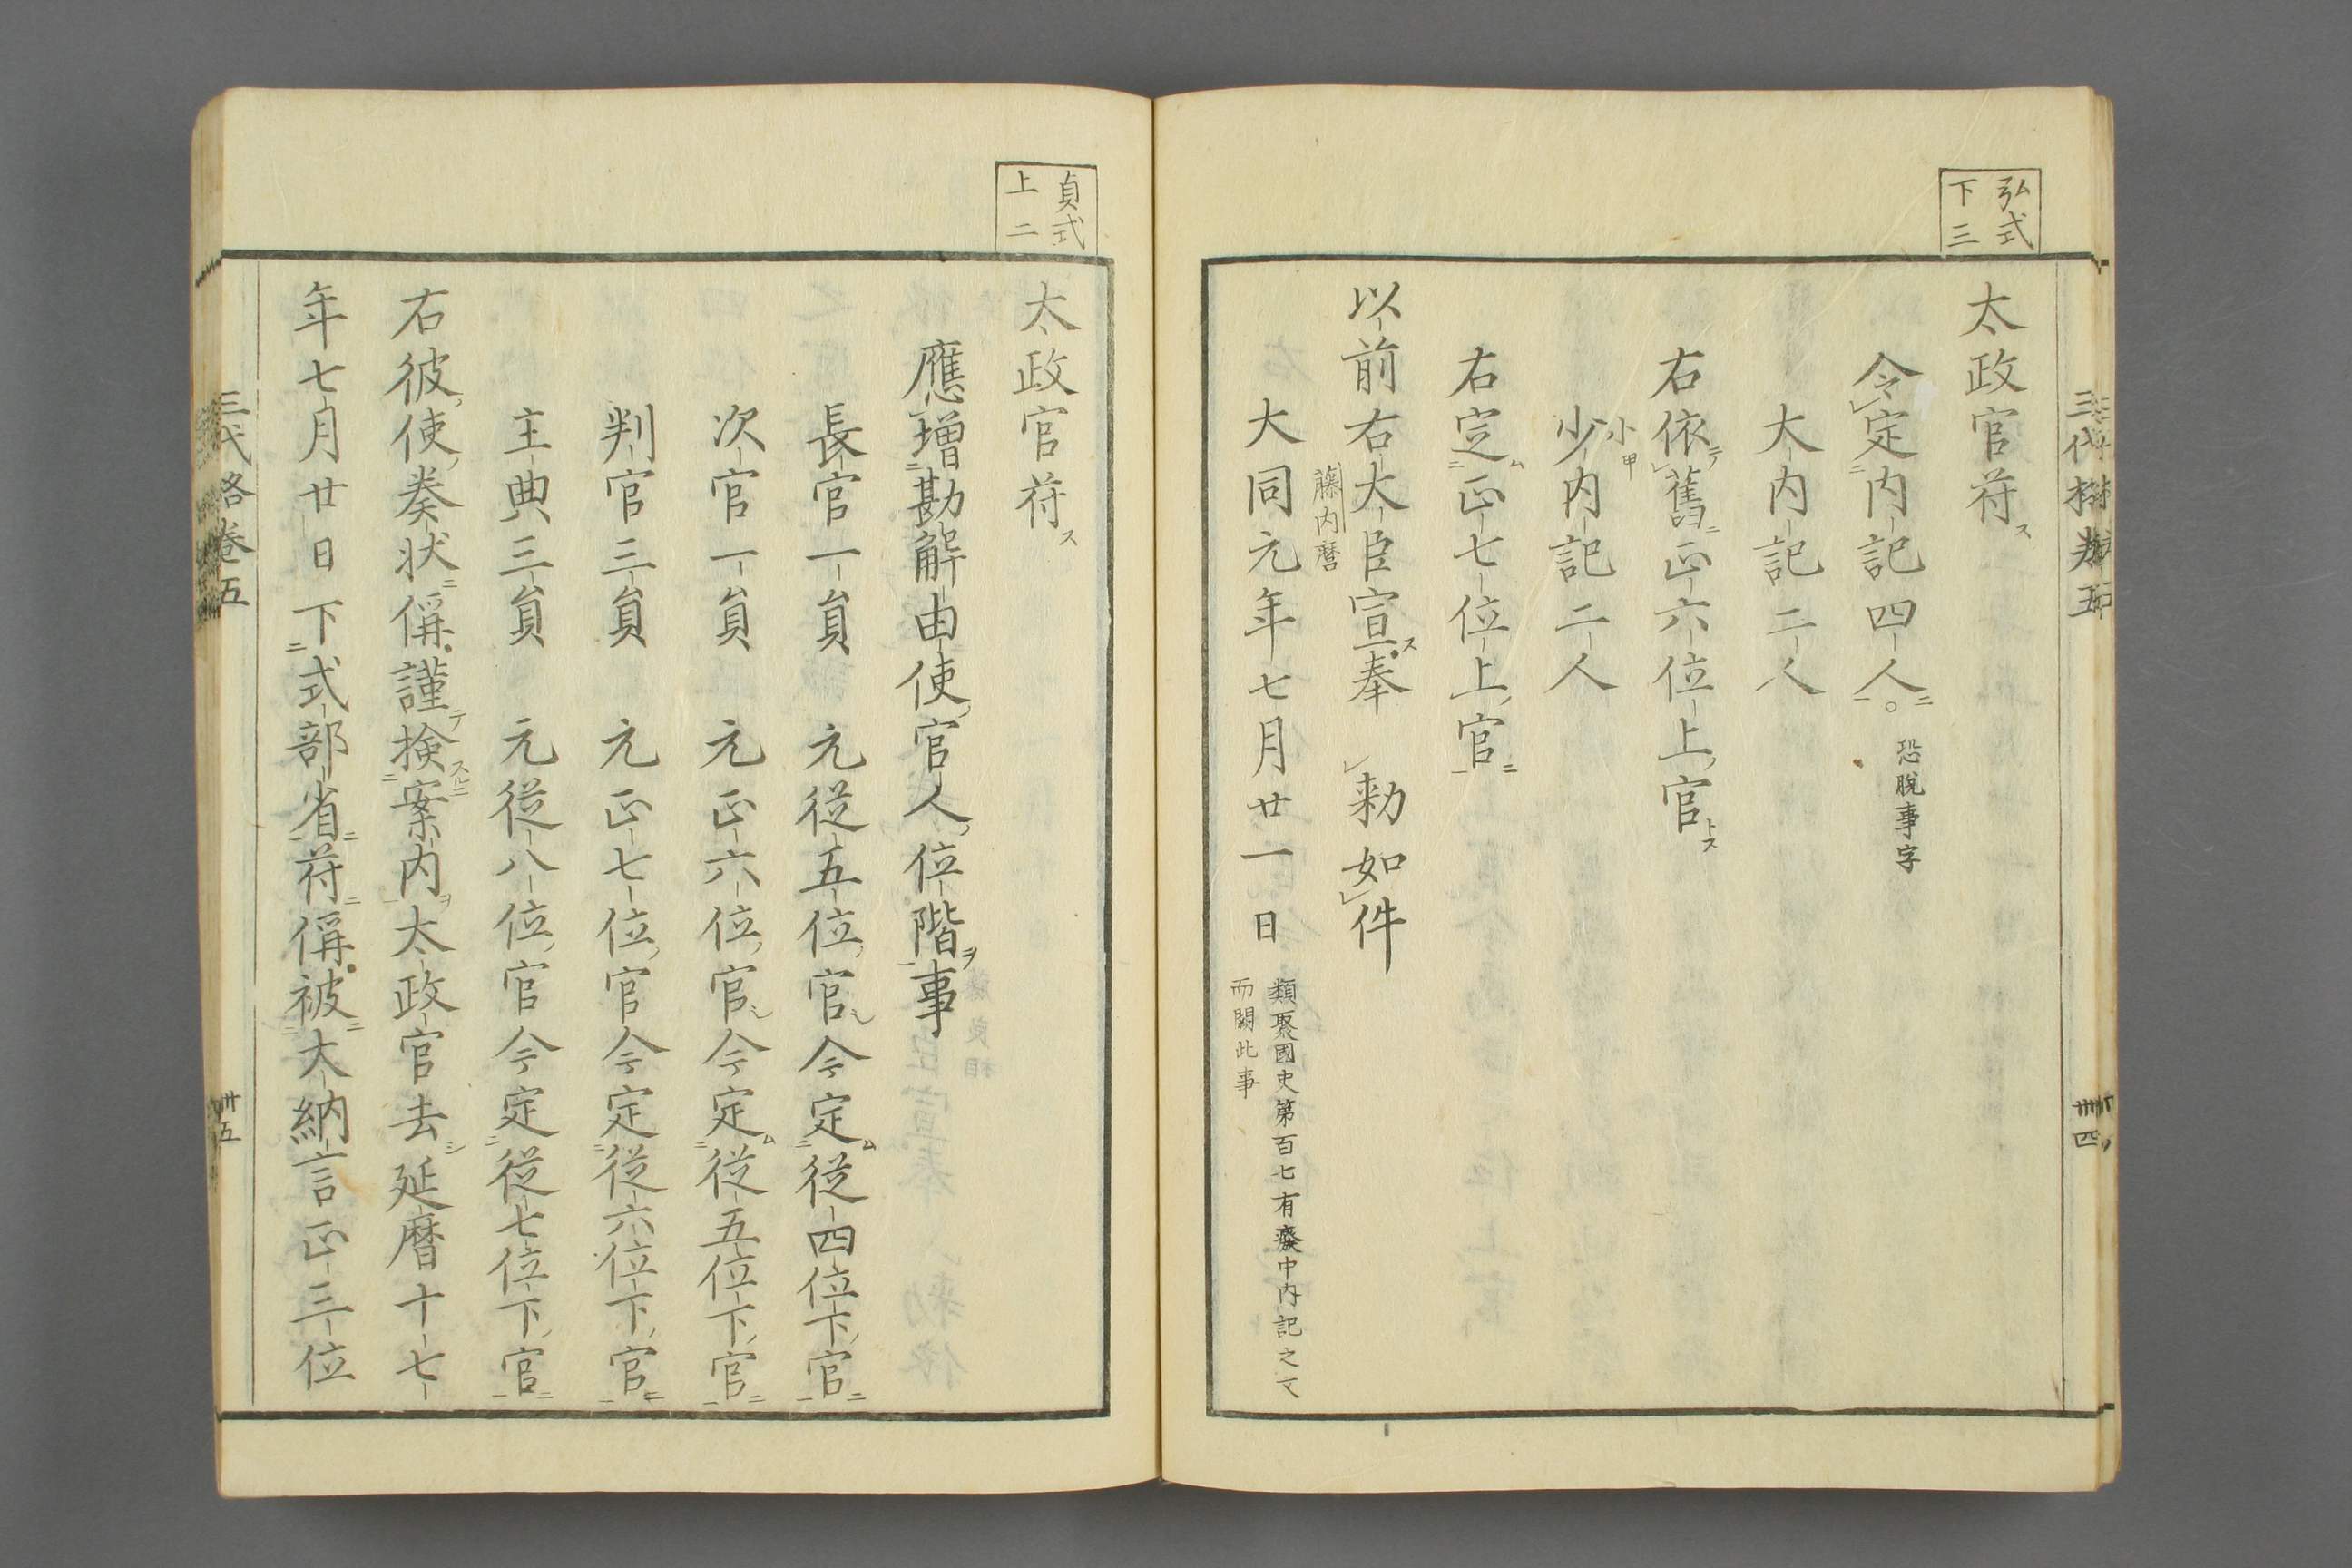 弘式
下三
太政官符ス
令定内記四人 恐脱事字
大内記二人
右依舊正六位上官トス
少内記二人
小甲
右定正七位上官
以前右大臣宣奉 勅如件
藤内麿
大同元年七月廿一日 類聚國史第百七有癈中内記之文
而闕此事
三代格卷五
丗四
貞式
上二
太政官符ス
應増勘解由使官人位階事
長官一員 元從五位官今定從四位下官
次官一員 元正六位官今定從五位下官
判官三員 元正七位官今定從六位下官
主典三員 元從八位官今定從七位下官
右彼使奏状偁謹検案内太政官去延暦十七
年七月廿日下式部省符偁被大納言正三位
三代格卷五
丗五